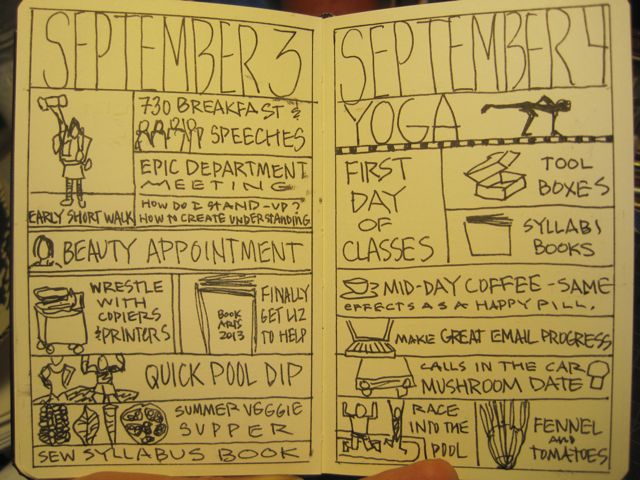 SEPTEMBER 3
EARLY SHORT WALK
730 BREAKFAST &
SPEECHES
EPIC DEPARTMENT
MEETING
HOW DO I STAND-UP?
HOW TO CREATE UNDERSTANDING
BEAUTY APPOINTMENT
WRESTLE
WITH
COPIERS
& PRINTERS
BOOK
ARTS
2013
FINALLY
GET LIZ
TO HELP
QUICK POOL DIP
SUMMER VEGGIE
SUPPER
SEW SYLLABUS BOOK
SEPTEMBER 4
YOGA
FIRST
DAY
OF
CLASSES
TOOL
BOXES
SYLLABI
BOOKS
MID-DAY COFFEE - SAME
EFFECTS AS A HAPPY PILL.
MAKE GREAT EMAIL PROGRESS
CALLS IN THE CAR
MUSHROOM DATE
RACE
INTO THE
POOL
FENNEL
AND
TOMATOES